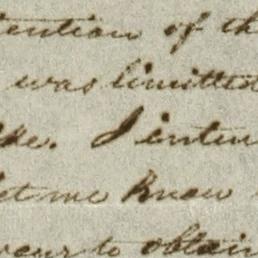 tention of th
was limitted
ke. I inten
let me know
vour to obtain